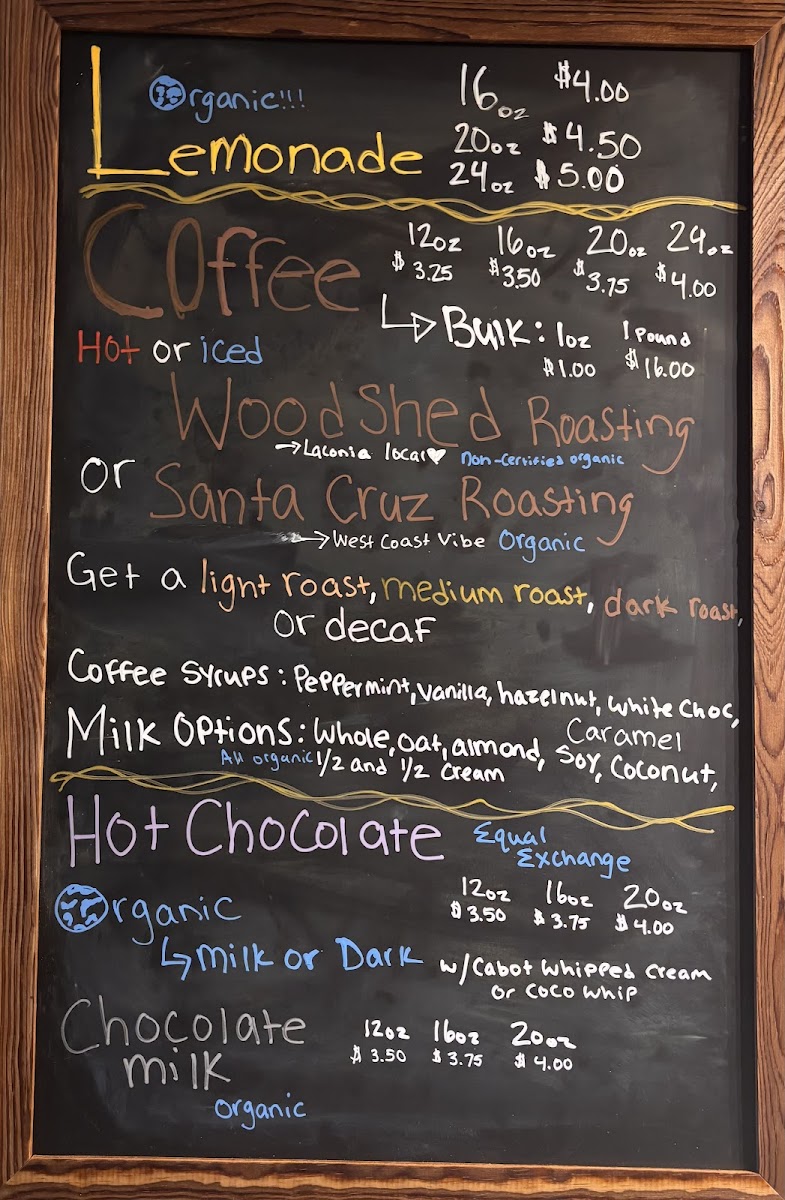 Organic!!!
Lemonade
16oz $4.00
20oz $4.50
24oz $5.00
Coffee
12oz 16oz 20oz 24oz
$3.25 $3.50 $3.75 $4.00
Hot or iced
↳ Bulk: 1oz 1 Pound
$1.00 $16.00
WoodShed Roasting
→ Laconia local ♥ Non-Certified organic
or Santa Cruz Roasting
→ West Coast Vibe Organic
Get a light roast, medium roast, dark roast,
or decaf
Coffee Syrups: Peppermint, vanilla, hazelnut, white choc,
Caramel
Milk Options: Whole, oat, almond, soy, coconut,
All organic 1/2 and 1/2 cream
Hot Chocolate Equal
Exchange
Organic
12oz 16oz 20oz
$3.50 $3.75 $4.00
↳ Milk or Dark w/Cabot whipped cream
or coco whip
Chocolate
milk
12oz 16oz 20oz
$3.50 $3.75 $4.00
organic